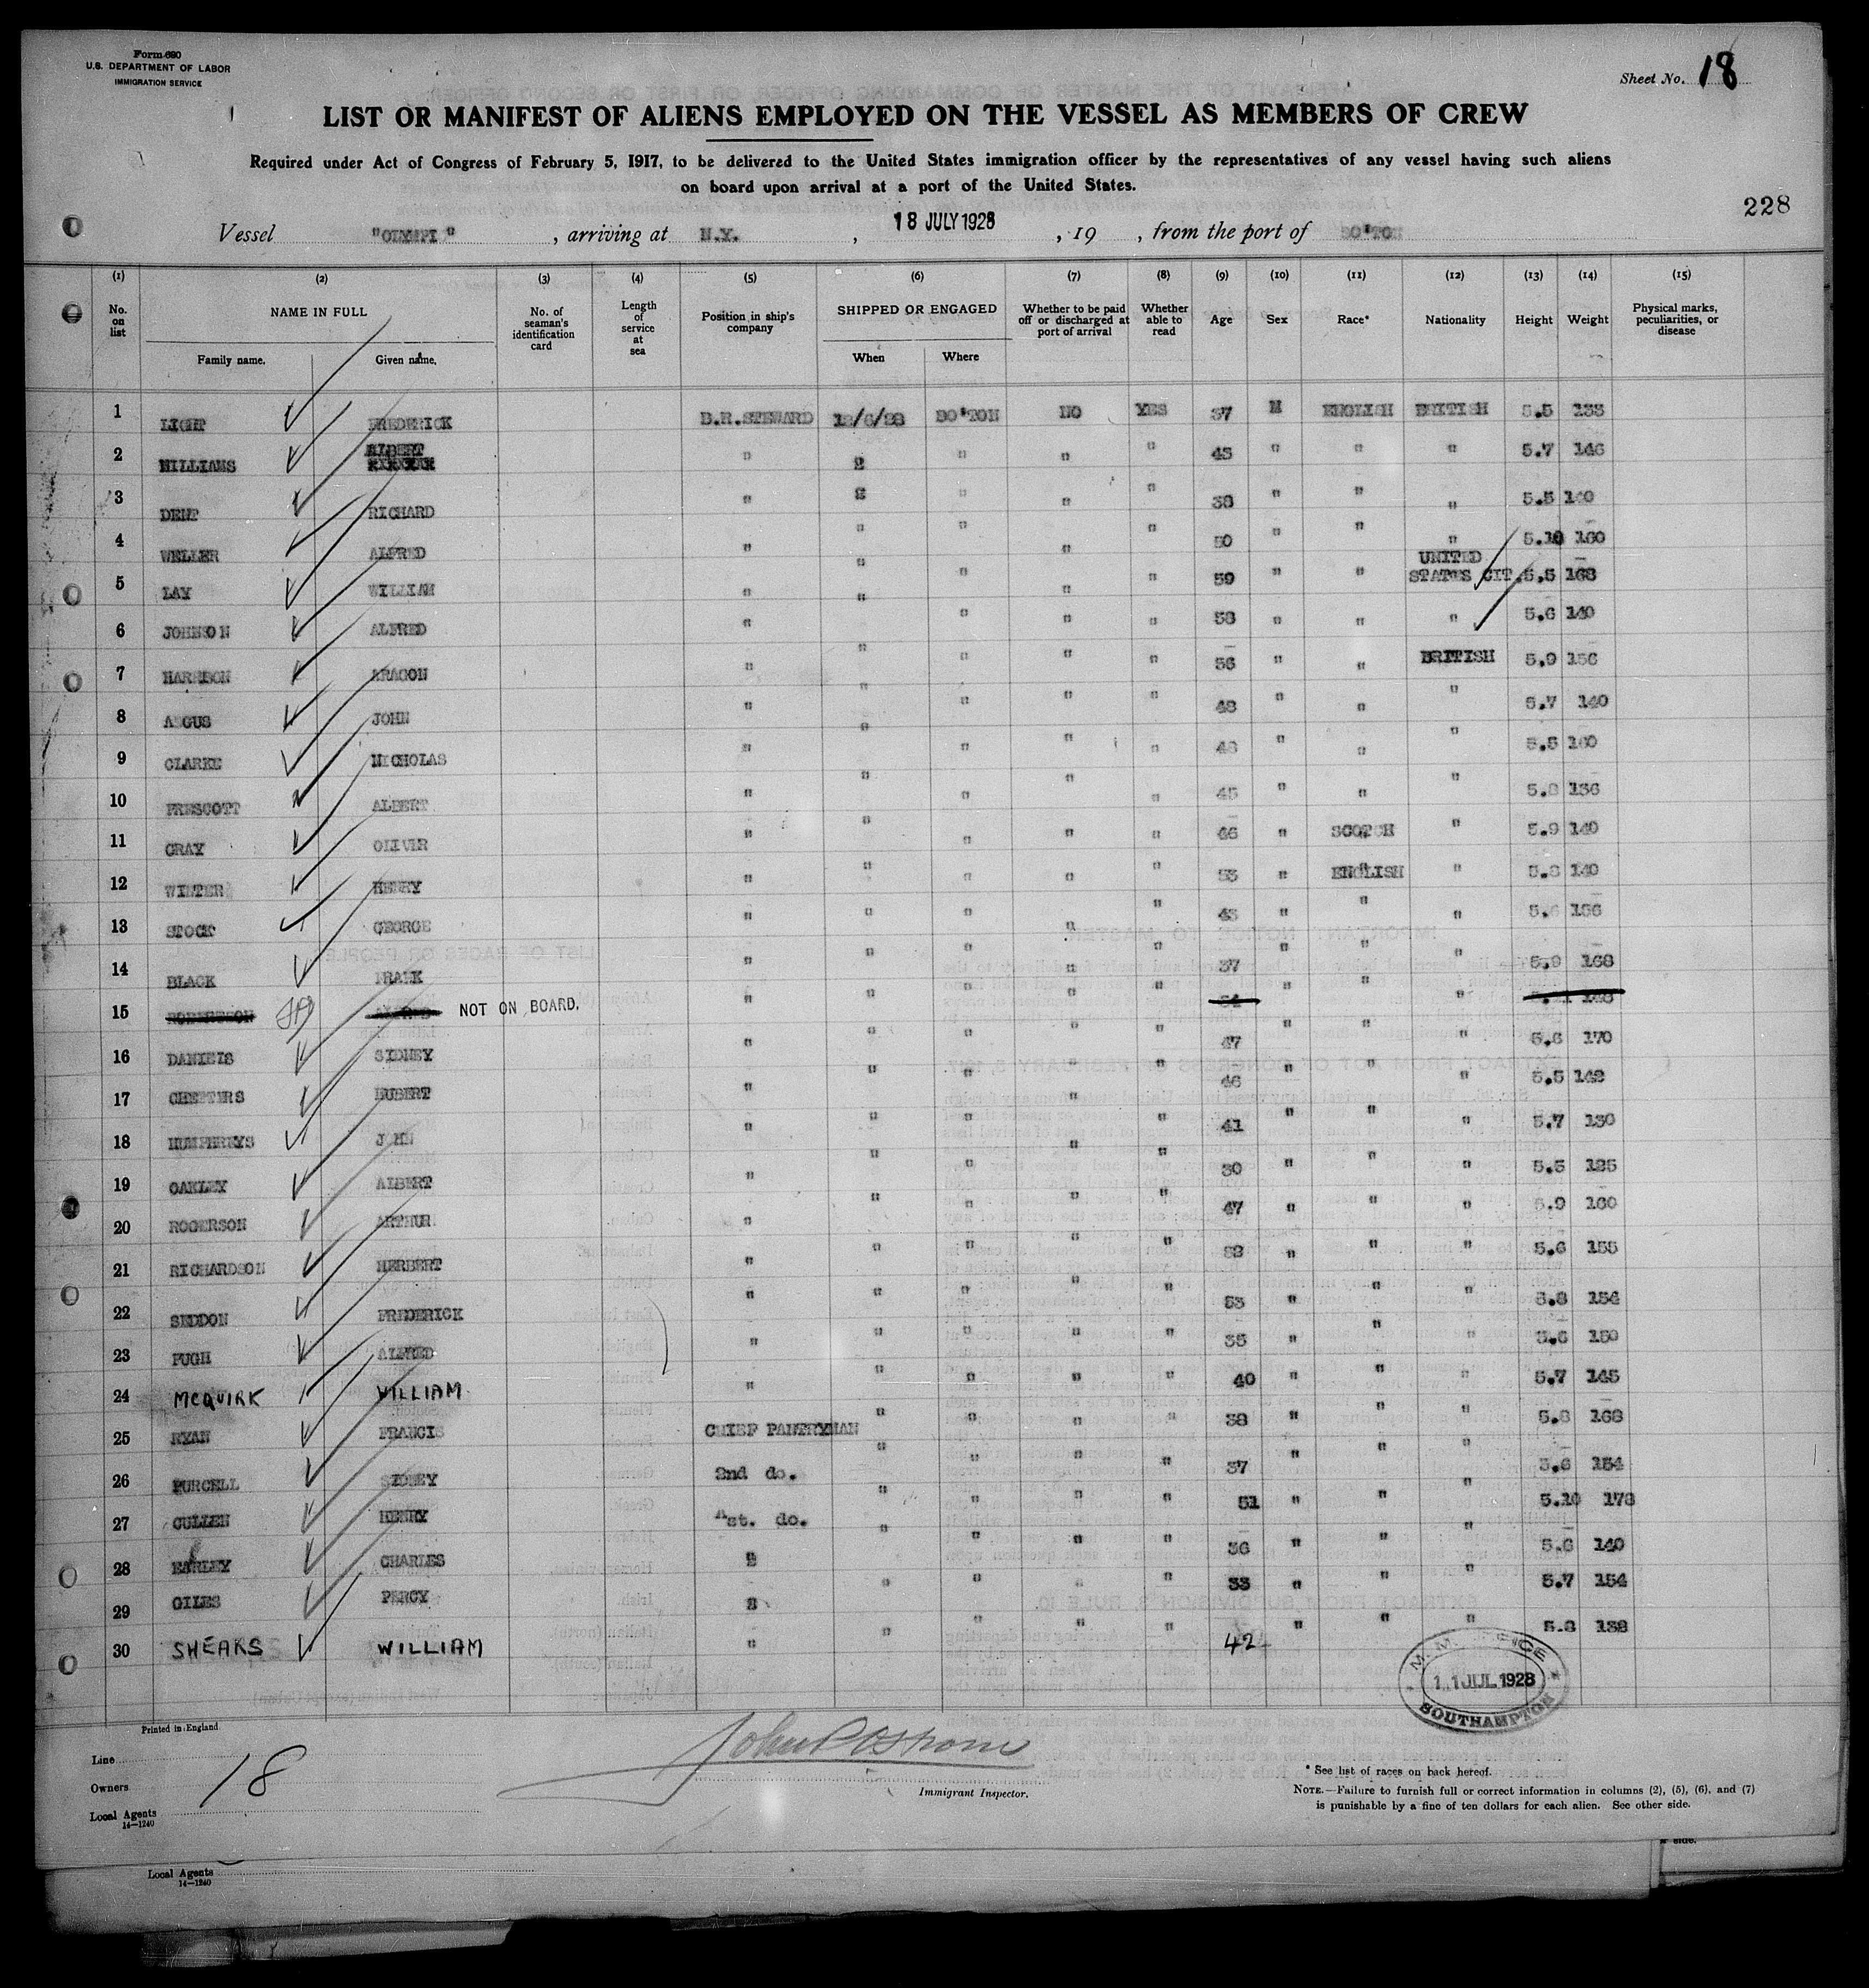 Form 680
U.S. DEPARTMENT OF LABOR
IMMIGRATION SERVICE
Sheet No. 18
LIST OR MANIFEST OF ALIENS EMPLOYED ON THE VESSEL AS MEMBERS OF CREW
Required under Act of Congress of February 5, 1917, to be delivered to the United States immigration officer by the representatives of any vessel having such aliens
on board upon arrival at a port of the United States.
228
Vessel "OLYMPI ", arriving at N.Y., 18 JULY 1928, 19 , from the port of SO'TON
(1) (2) (3) (4) (5) (6) (7) (8) (9) (10) (11) (12) (13) (14) (15)
No. on list NAME IN FULL No. of seaman's identification card Length of service at sea Position in ship's company SHIPPED OR ENGAGED Whether to be paid off or discharged at port of arrival Whether able to read Age Sex Race* Nationality Height Weight Physical marks, peculiarities, or disease
Family name. Given name. When Where
1 LIGHT FREDERICK B.R.STEWARD SO'TON NO YES 37 M ENGLISH BRITISH 5.5
2 WILLIAMS ALBERT " " " " " " " 5.7 146
3 DENT RICHARD " " " " 38 " " " 5.5 140
4 WELLER ALFRED " " " " " 50 " " " 5.10 160
5 LAY WILLIAM " " " " " 59 " " UNITED STATES CIT. 5.5 168
6 JOHNSON ALFRED " " " " " 58 " " " 5.6 140
7 HARRISON ARAGON " " " " " 56 " " BRITISH 5.9 156
8 ANGUS JOHN " " " " " 48 " " " 5.7 140
9 CLARKE NICHOLAS " " " " " 48 " " " 5.5 160
10 PRESCOTT ALBERT " " " " " 45 " " " 5.8 136
11 GRAY OLIVER " " " " " 46 " SCOTCH " 5.9 140
12 WINTER HENRY " " " " " 53 " ENGLISH " 5.8 140
13 STOCK GEORGE " " " " " " " " 156
14 BLACK FRANK " " " " " 37 " " " 5.9 168
15 ROBERTSON ALFRED NOT ON BOARD. " " " " " " " "
16 DANIELS SIDNEY " " " " " 47 " " " 5.6 170
17 CHEETERS HUBERT " " " " " 46 " " " 5.5 142
18 HUMPHREYS JOHN " " " " " 41 " " " 5.7 130
19 OAKLEY ALBERT " " " " " 30 " " " 5.5 125
20 ROGERSON ARTHUR " " " " " 47 " " " 5.9 160
21 RICHARDSON HERBERT " " " " " " " " 5.6 155
22 SEDDON FREDERICK " " " " " 53 " " " 5.8 154
23 PUGH ALFRED " " " " " 35 " " " 5.6 150
24 MCQUIRK WILLIAM " " " " " 40 " " " 5.7 145
25 RYAN FRANCIS CHIEF PANTRYMAN " " " " 38 " " " 5.8 168
26 PURCELL SIDNEY 2nd do. " " " " 37 " " " 5.6 154
27 CULLEN HENRY Ast. do. " " " " 51 " " " 5.10 178
28 EARLEY CHARLES " " " " " 36 " " " 5.6 140
29 GILES PERCY " " " " " 33 " " " 5.7 154
30 SHEARS WILLIAM " " " " " 42 " " " 5.8 138
M.M. OFFICE
11 JUL 1928
SOUTHAMPTON
Printed in England
Line
Owners
Local Agents
14—1240
18
Immigrant Inspector.
* See list of races on back hereof.
NOTE.—Failure to furnish full or correct information in columns (2), (5), (6), and (7)
is punishable by a fine of ten dollars for each alien. See other side.
side.
Local Agents
14—1240